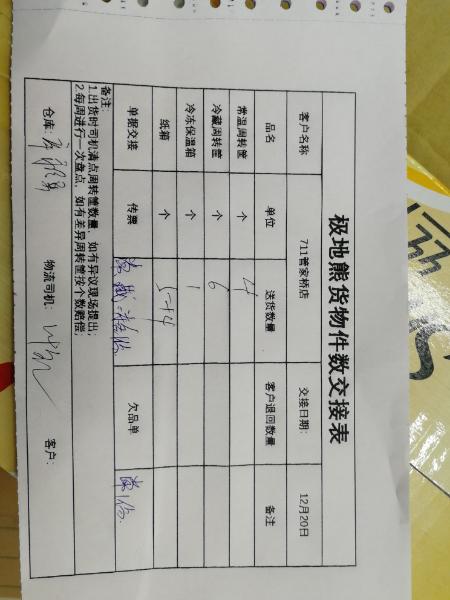 极地熊货物件数交接表
客户名称 711管家桥店 交接日期: 12月20日
品名 单位 送货数量 客户退回数量 备注
常温周转筐 个 4
冷藏周转筐 个 6
冷冻保温箱 个 1
纸箱 个
单据交接 传票 欠品单
备注:
1.出货时司机清点周转筐数量，如有异议现场提出;
2.每周进行一次盘点，如有差异周转筐按个数赔偿;
仓库: 物流司机: 客户: